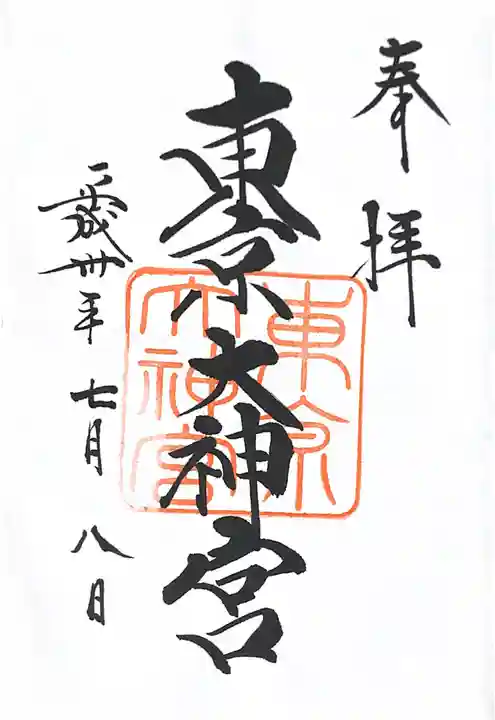 奉拝
東京大神宮
東京
大神宮
平成卅年七月八日